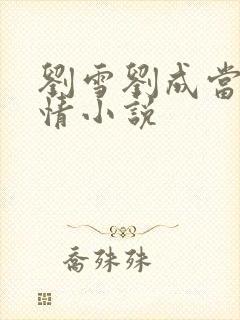 劉雪劉成當
情小説
喬殊殊